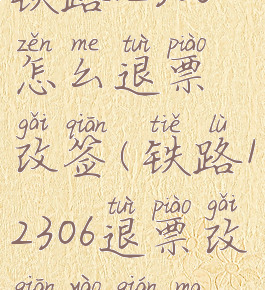 zěn me tuì piào
怎么退票
gǎi qiān tiě lù
改签(铁路1
tuì piào gǎi
2306退票改